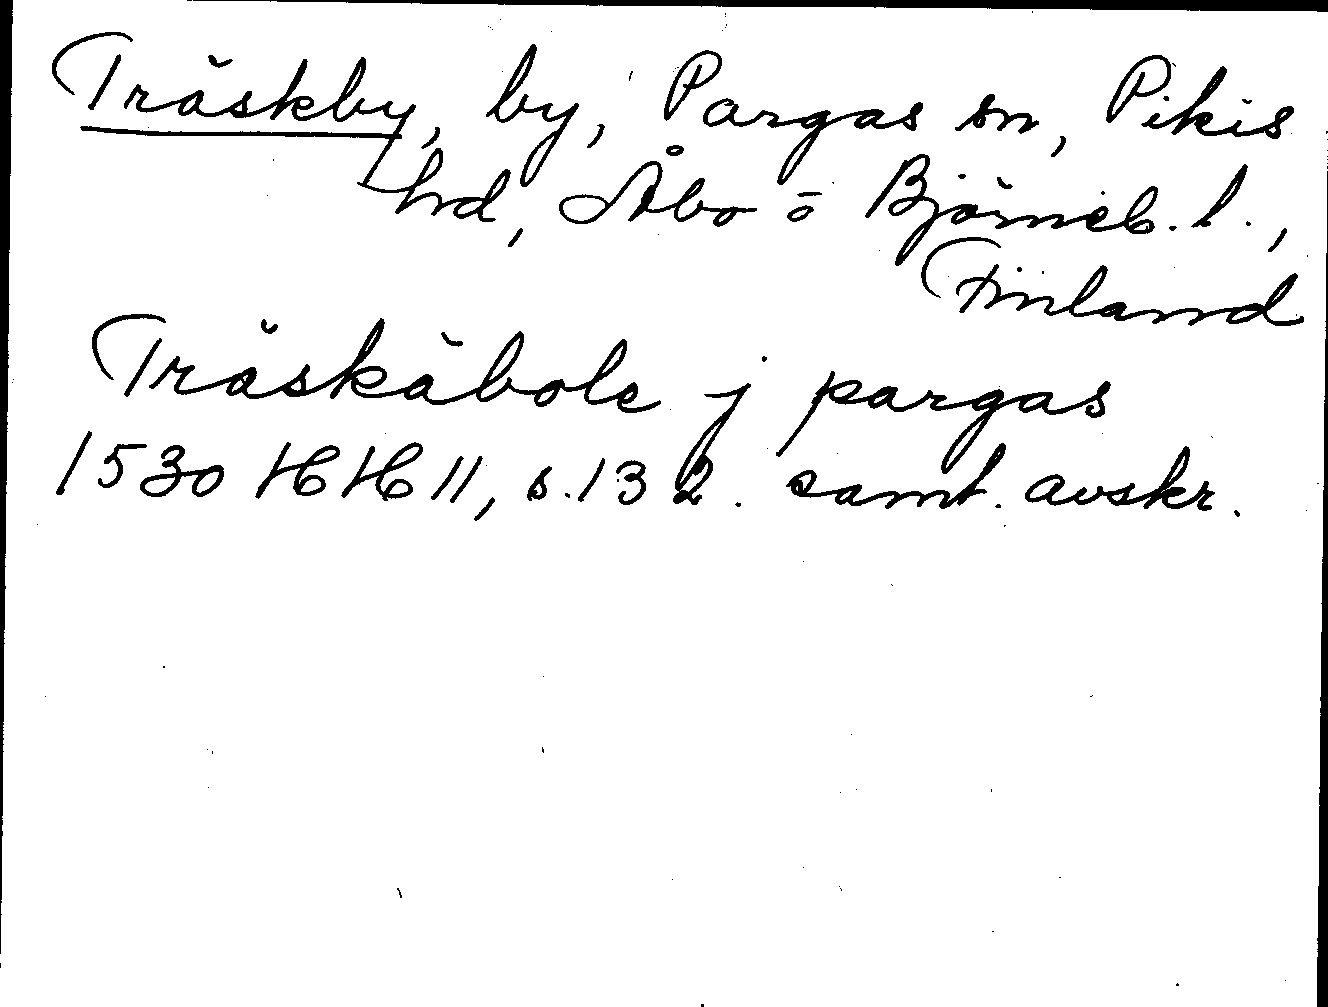 Träskby, by, Pargas sn, Pikis
hd, Åbo o Björneb. l.,
Finland
Träskäbole j pargas
1530 HH 11, s. 132. samt. avskr.